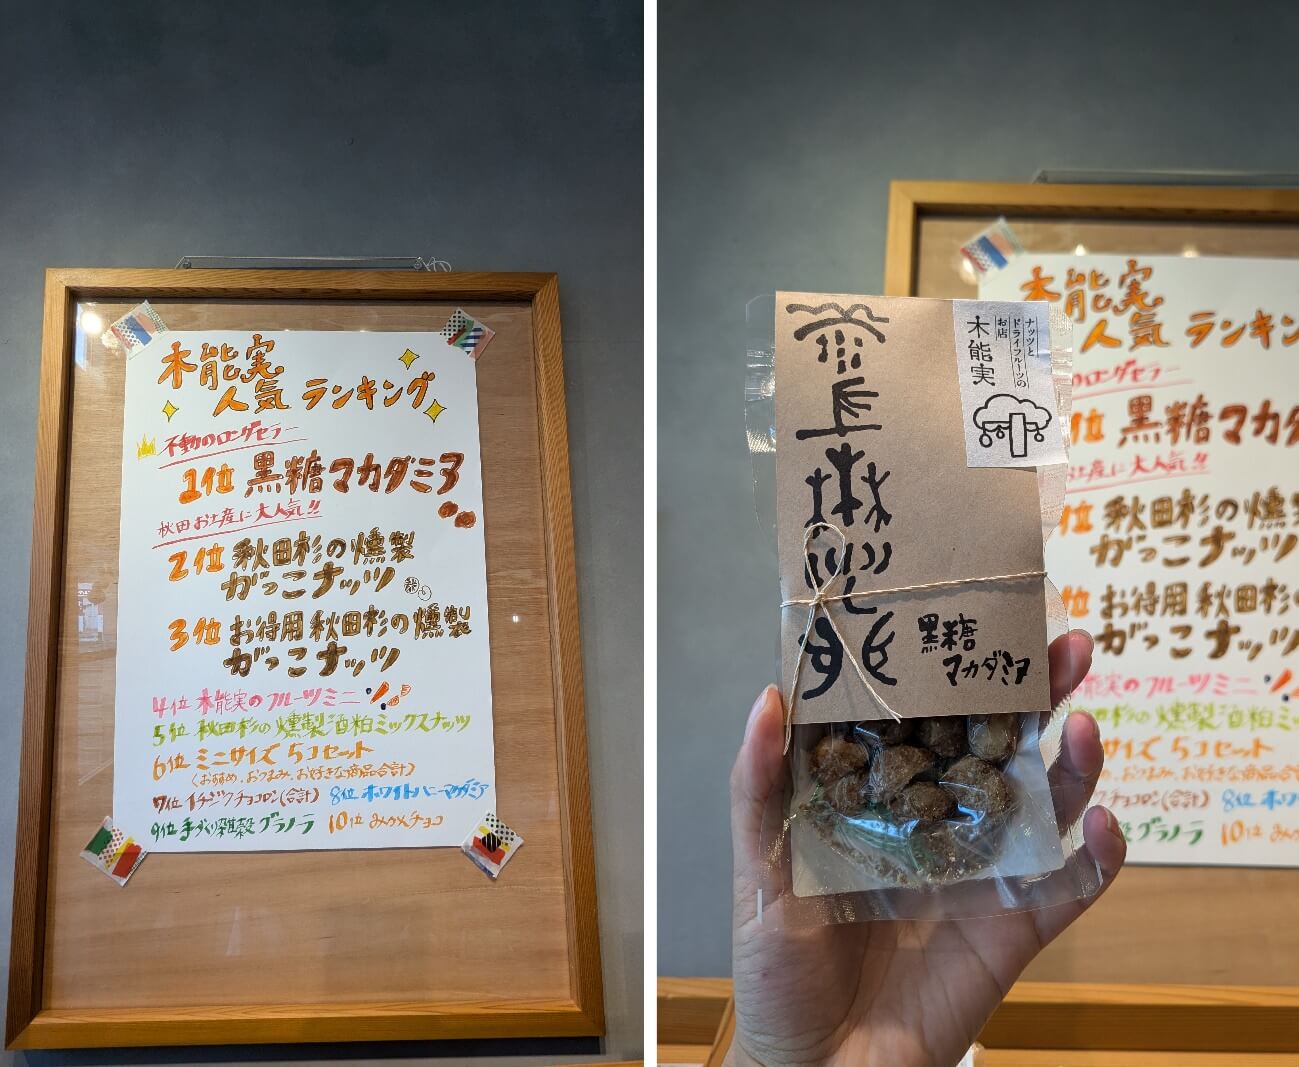 木能実
人気ランキング
不動のロングセラー
1位 黒糖マカダミア
秋田お土産に大人気!!
2位 秋田杉の燻製
がっこナッツ
3位 お得用秋田杉の燻製
がっこナッツ
4位 木能実のフルーツミニ
5位 秋田杉の燻製酒粕ミックスナッツ
6位 ミニサイズ 5コセット
(おすすめ、おつまみ、お好きな商品合計)
7位 イチジクチョコロン(合計) 8位 ホワイトハニーマカダミア
9位 手づくり雑穀グラノーラ 10位 みかんチョコ
ナッツと
ドライフルーツの
お店
木能実
黒糖
マカダミア
木能実
人気 ランキン
のロングセラー
位 黒糖マカダ
お土産に大人気!!
位 秋田杉の燻
がっこナッツ
位 お得用 秋田杉の
がっこナッツ
木能実のフルーツミニ
秋田杉の燻製酒粕ミッ
サイズ 5コセット
、おつまみ、お好きな商品合計
クチョコロン(合計) 8位 ホワ
穀グラノーラ 10位 みかんチョコ